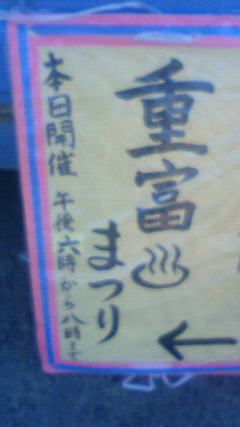 重富♨まつり
本日開催 午後六時から八時まで